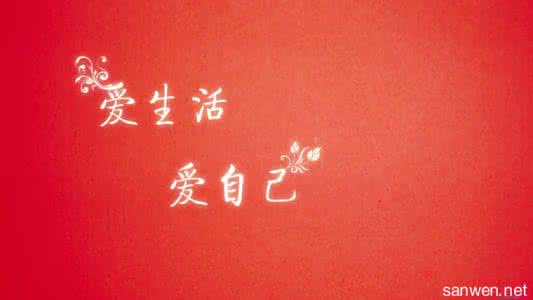 爱生活
爱自己
sanwen.net